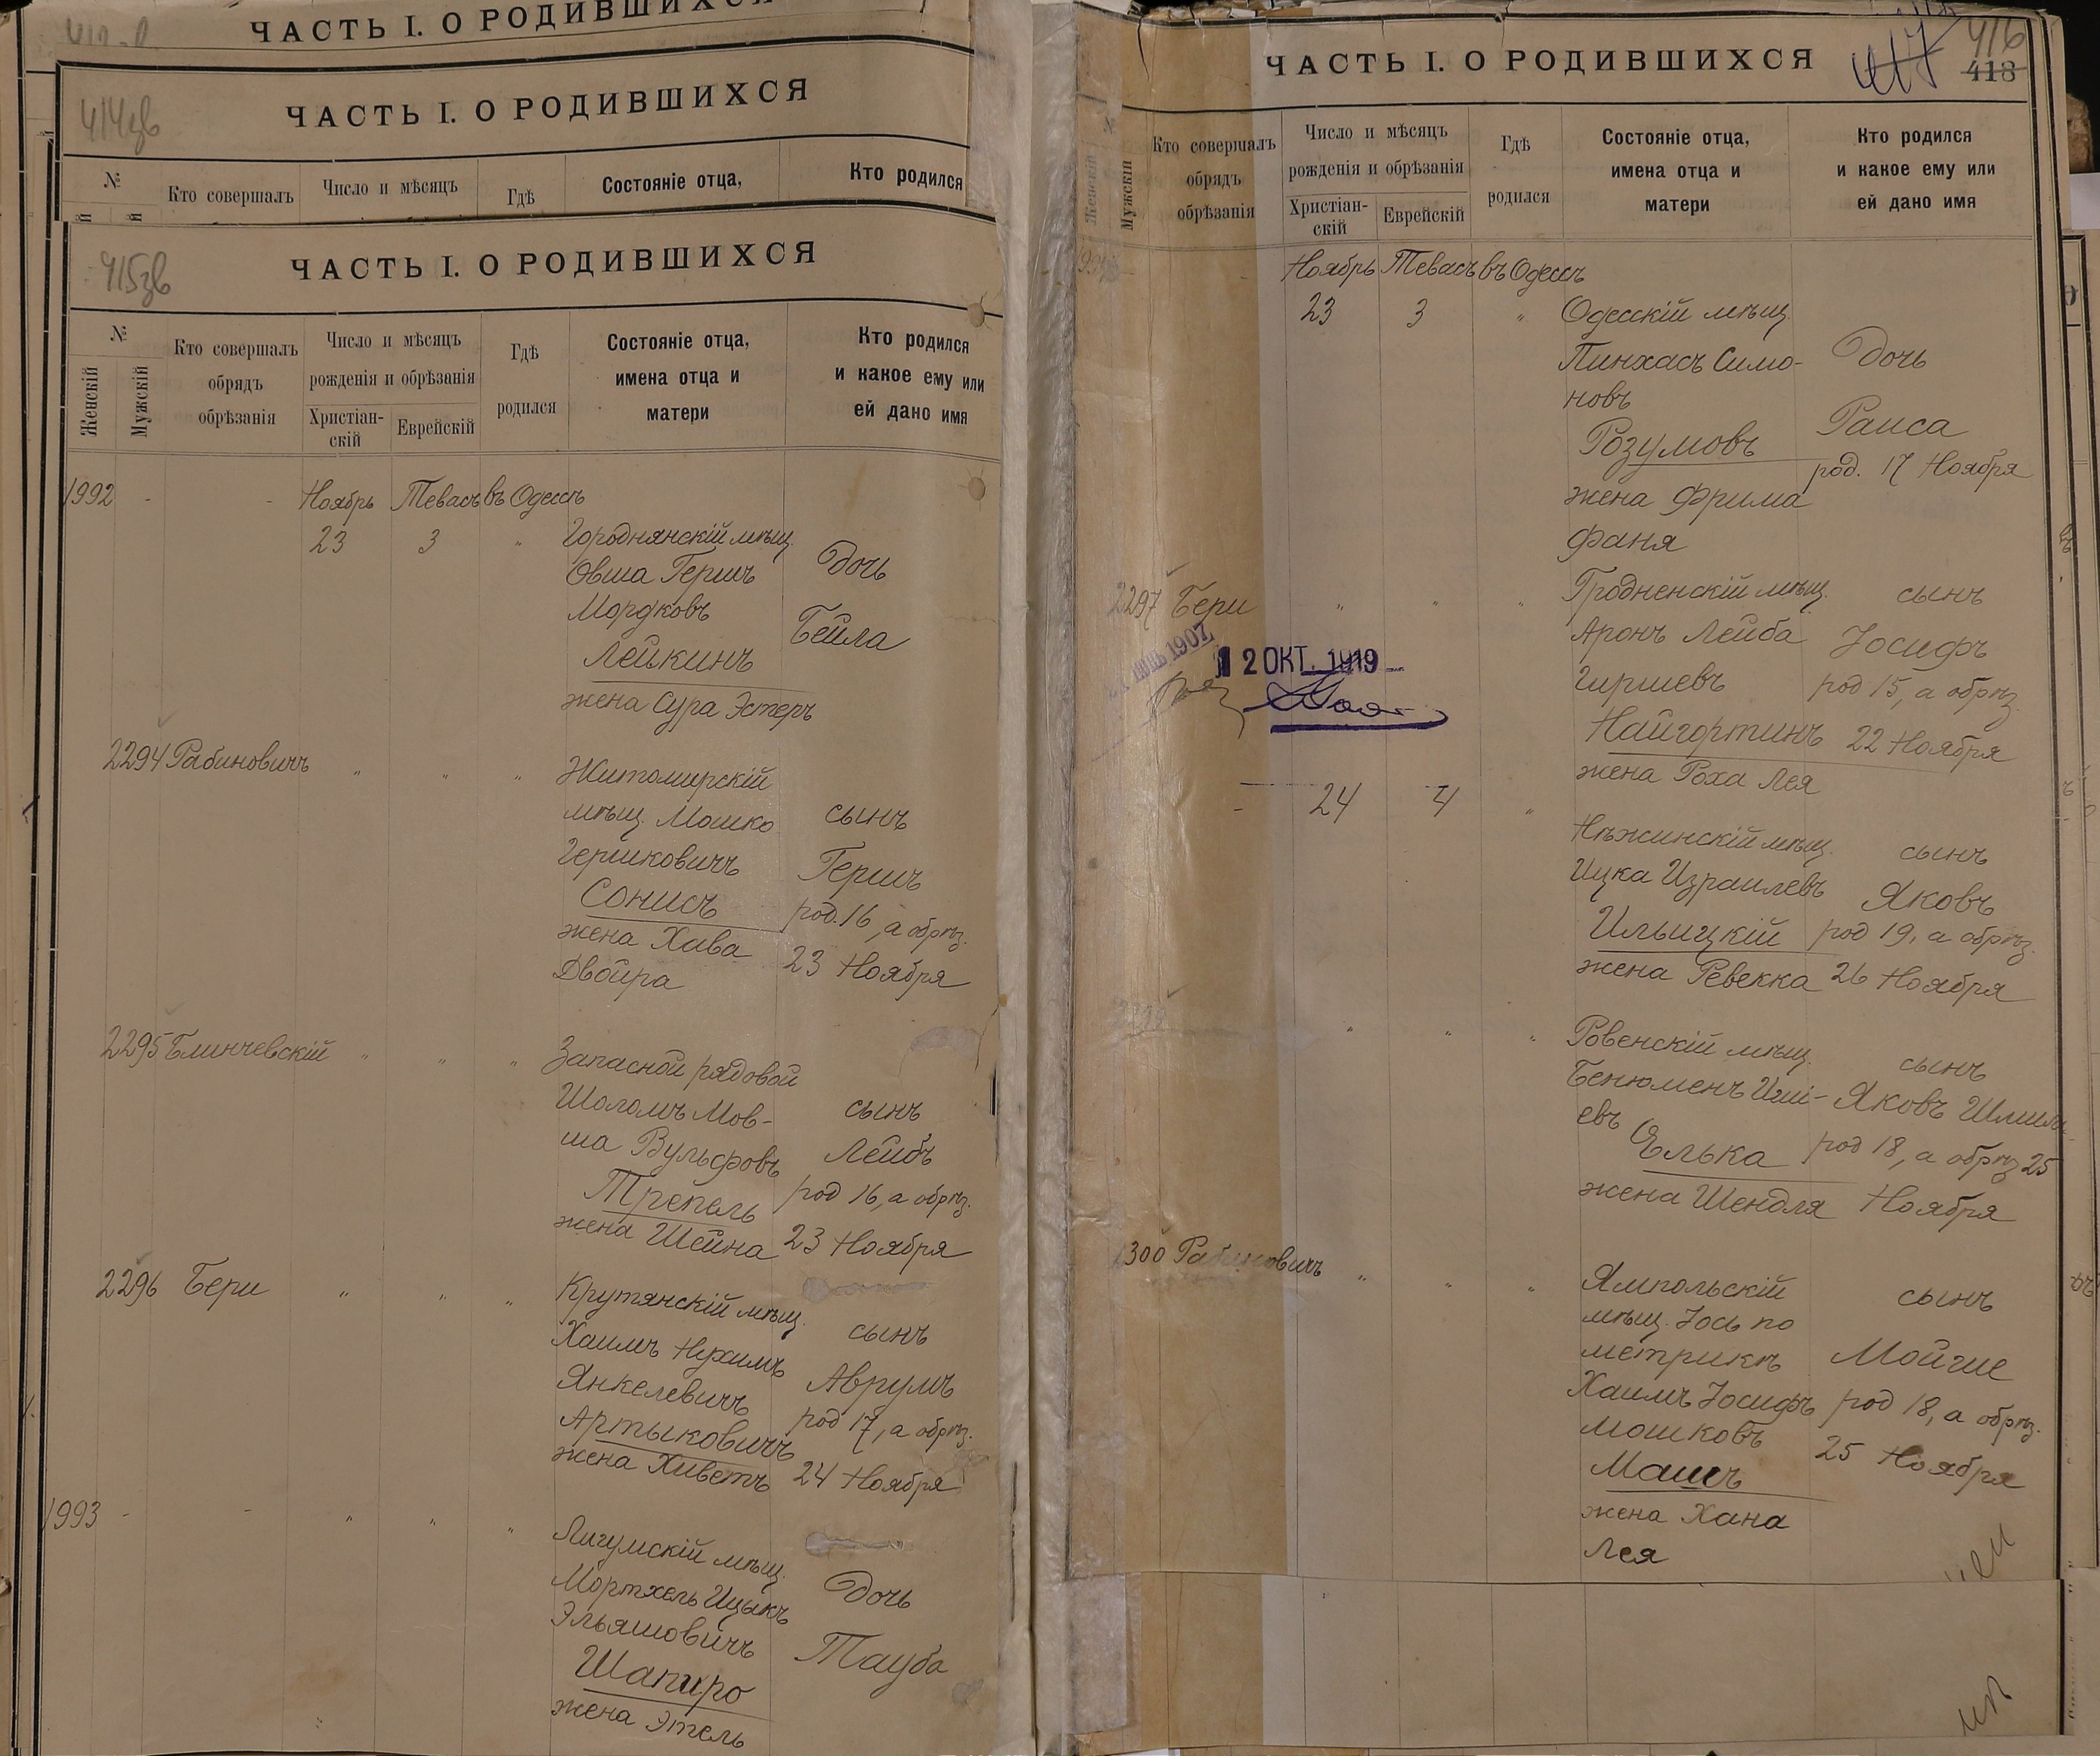 ЧАСТЬ I. О РОДИВШИХСЯ
414зв
ЧАСТЬ I. О РОДИВШИХСЯ
№
Кто совершалъ
Число и мѣсяцъ
Гдѣ
Состоянiе отца,
Кто родился
415зв
ЧАСТЬ I. О РОДИВШИХСЯ
№
Женскiй
Мужскiй
Кто совершалъ
обрядъ
обрѣзанiя
Число и мѣсяцъ
рожденiя и обрѣзанiя
Христiан-
скiй
Еврейскiй
Гдѣ
родился
Состоянiе отца,
имена отца и
матери
Кто родился
и какое ему или
ей дано имя
1992 - - Ноябрь Тевасъ въ Одессѣ
23 3 " Городнянскiй мѣщ.
Овша Гершъ Дочь
Мордковъ Бейла
Лейкинъ
жена Сура Эстеръ
2294 Рабиновичъ " " " Житомирскiй
мѣщ. Мошко сынъ
Гершковичъ Гершъ
Сонисъ род. 16, а обрѣз.
жена Хава 23 Ноября
Двойра
2295 Блинчевскiй " " " Запасной рядовой
Шоломъ Мов- сынъ
ша Вульфовъ Лейбъ
Трепель род 16, а обрѣз.
жена Шейна 23 Ноября
2296 Бери " " " Крутянскiй мѣщ.
Хаимъ Нухимъ сынъ
Янкелевичъ Аврумъ
Артыковичъ род 17, а обрѣз.
жена Хиветъ 24 Ноября
1993 - - " " " Лигумскiй мѣщ.
Мортхель Ицыкъ Дочь
Эльяшовичъ Тауба
Шапиро
жена Этель
417 416
418
ЧАСТЬ I. О РОДИВШИХСЯ
Женскiй
Мужскiй
Кто совершалъ
обрядъ
обрѣзанiя
Число и мѣсяцъ
рожденiя и обрѣзанiя
Христiан-
скiй
Еврейскiй
Гдѣ
родился
Состоянiе отца,
имена отца и
матери
Кто родился
и какое ему или
ей дано имя
Ноябрь Тевасъ въ Одессѣ
23 3 " Одесскiй мѣщ.
Пинхасъ Симо- Дочь
новъ
Розумовъ Раиса
род. 17 Ноября
жена Фрима
Фаня
2297 Бери " " " Гродненскiй мѣщ. сынъ
Аронъ Лейба Іосифъ
Гиршевъ род 15, а обрѣз.
Найгортинъ 22 Ноября
жена Роха Лея
1907
12 ОКТ. 1919
- 24 4 " Нѣжинскiй мѣщ. сынъ
Ицка Израилевъ Яковъ
Ильицкiй род 19, а обрѣз.
жена Ревекка 26 Ноября
" " " Ровенскiй мѣщ. сынъ
Бенюменъ Яковъ
евъ
Елька род 18, а обрѣз 25
жена Шендля Ноября
300 Рабиновичъ " " " Ямпольскiй сынъ
мѣщ. Іось по
метрикѣ Мойше
Хаимъ Іосифъ род 18, а обрѣз.
Мошковъ 25 Ноября
Машъ
жена Хана
Лея